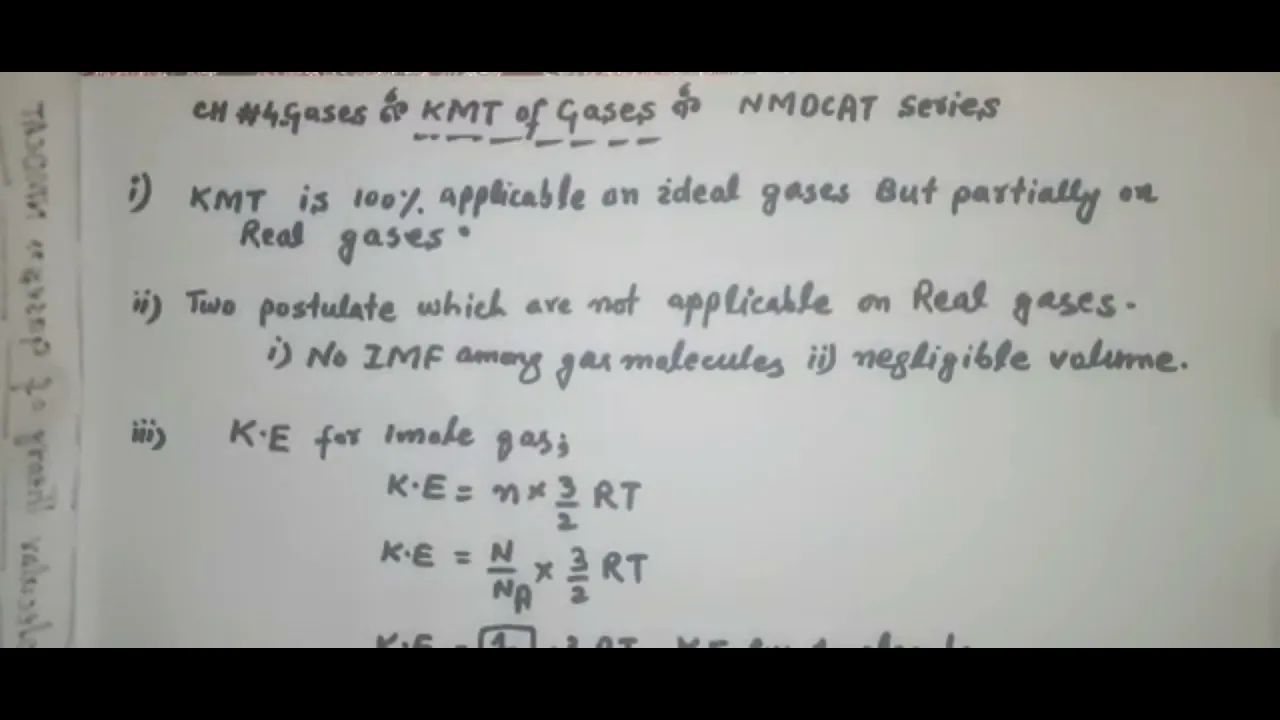 CH #4. Gases KMT of Gases NMDCAT Series
i) KMT is 100% applicable on ideal gases But partially on
Real gases.
ii) Two postulate which are not applicable on Real gases.
i) No IMF among gas molecules ii) negligible volume.
iii) K.E for 1mole gas;
K.E = n × 3/2 RT
K.E = N/NA × 3/2 RT